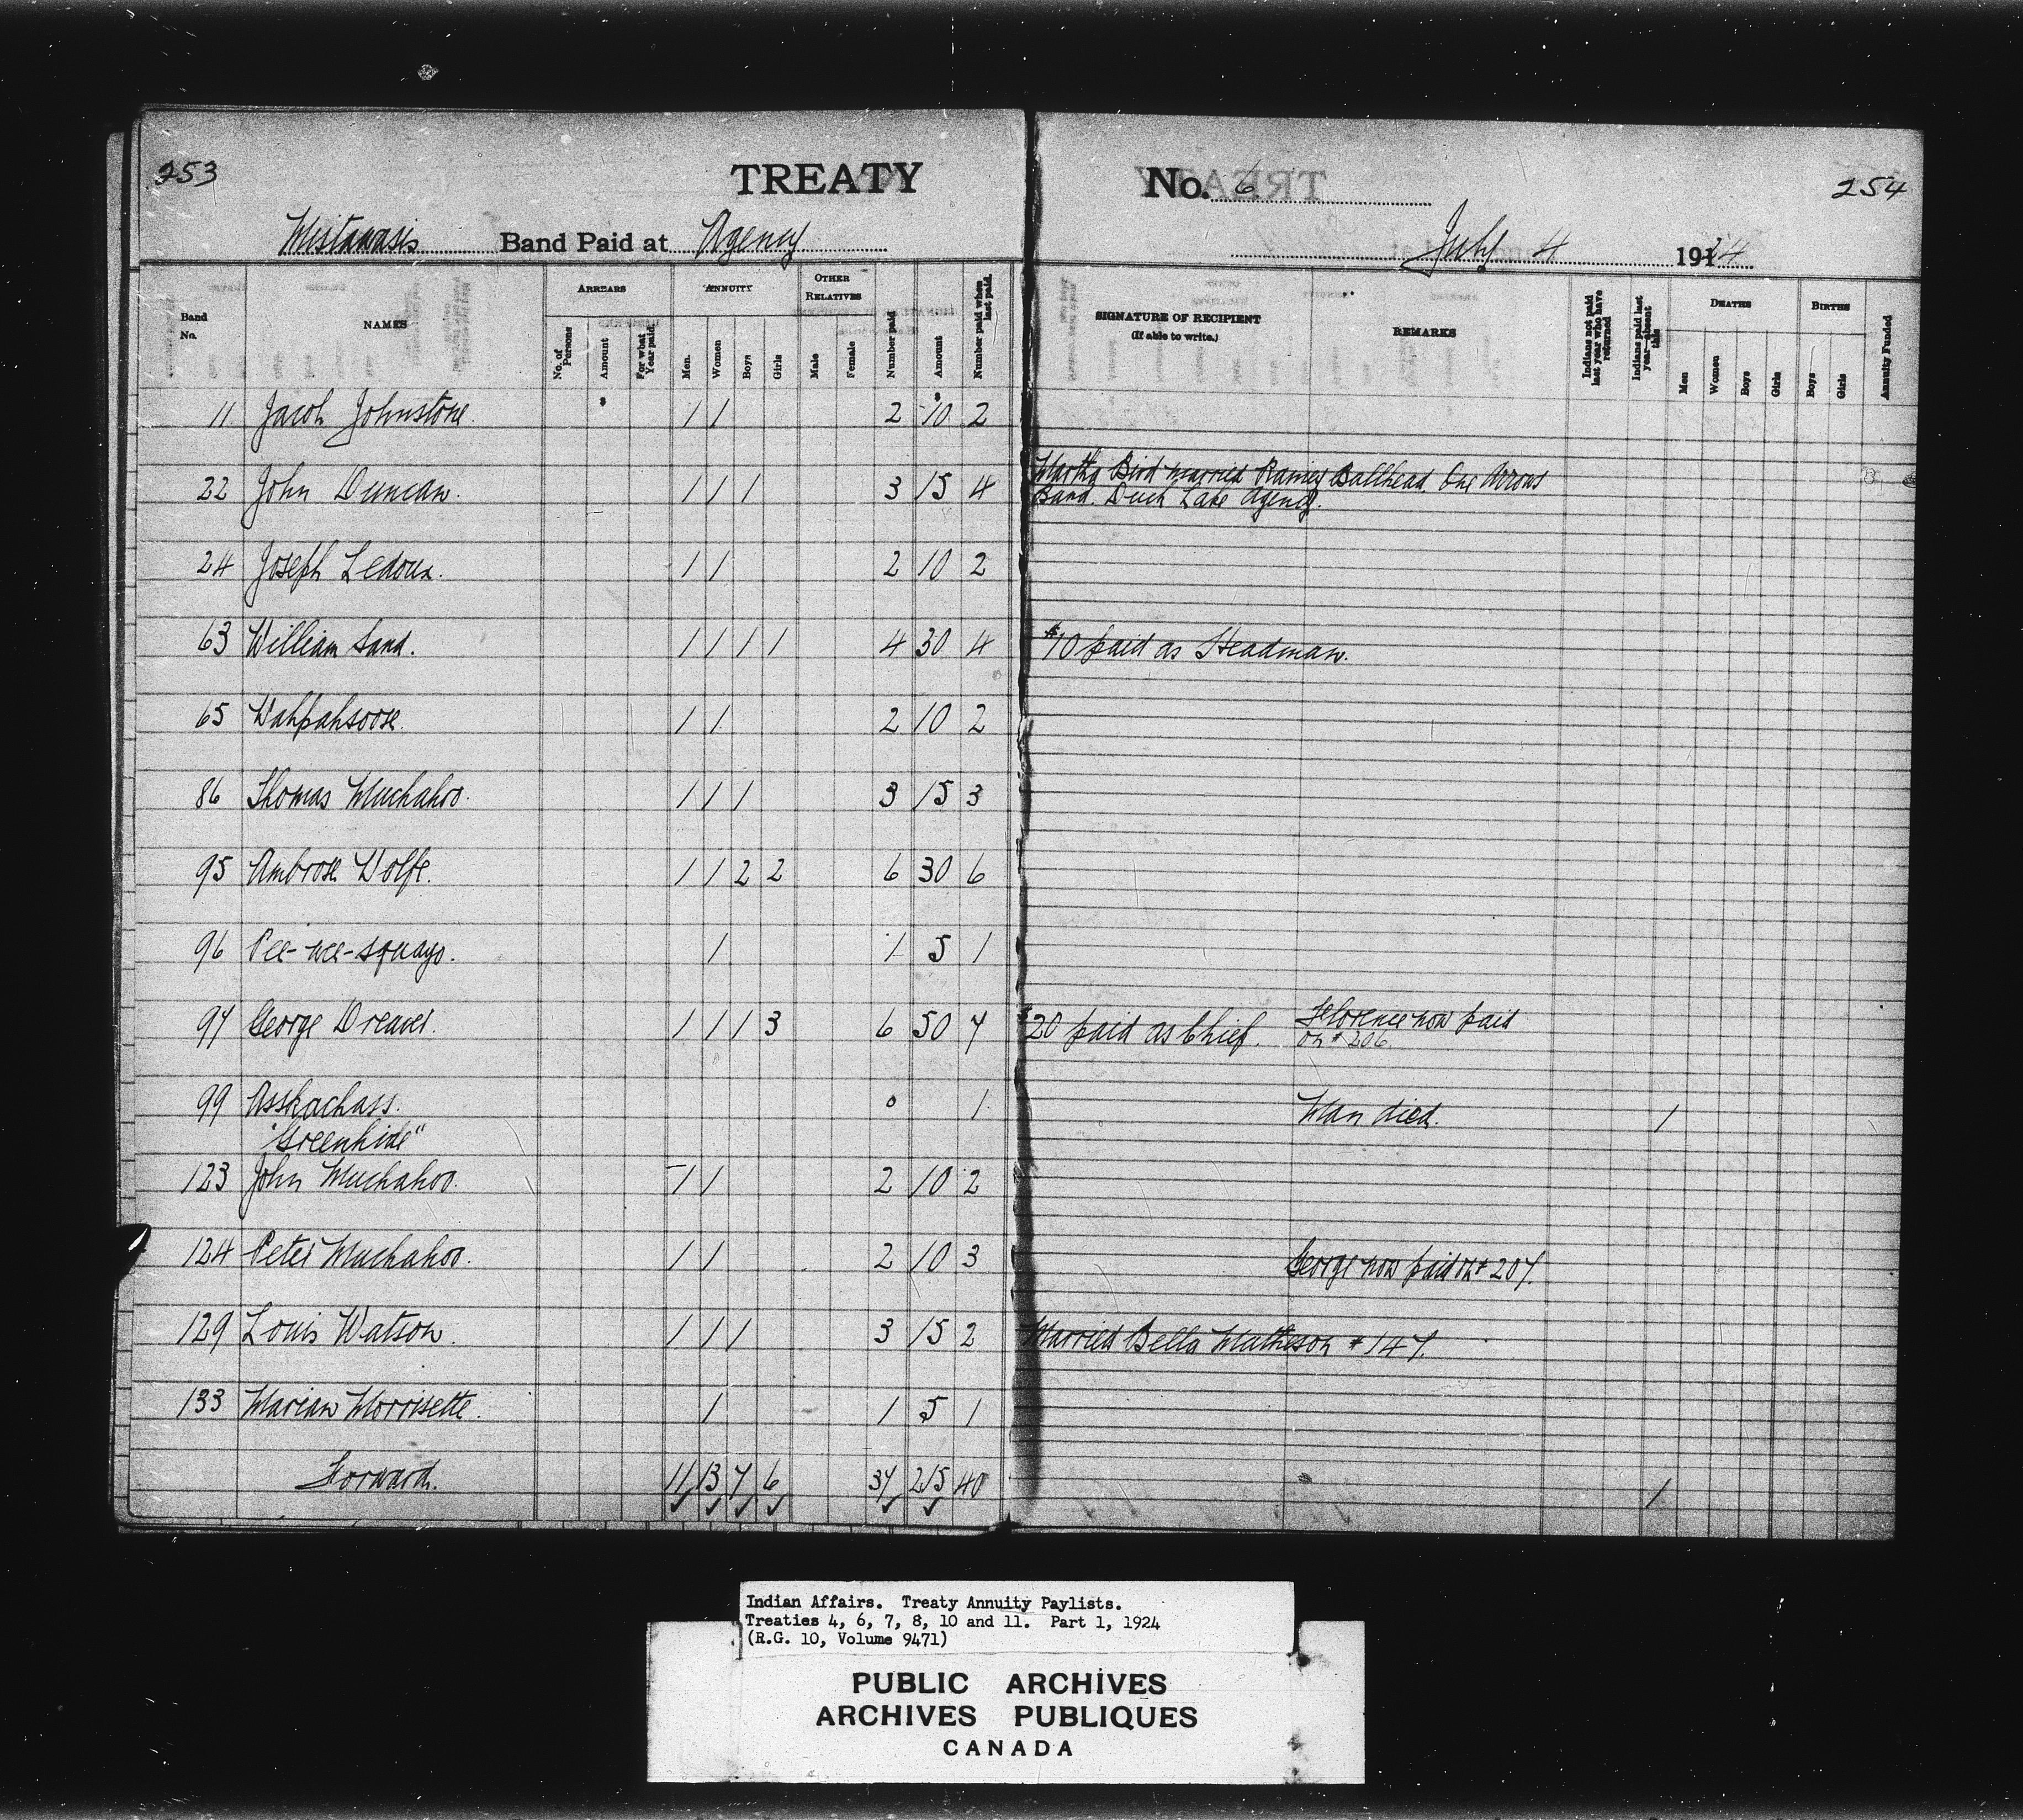 253
TREATY
No. 6
254
Mistawasis Band Paid at Agency
July 4 1924
Band No.
NAMES
ARREARS
No. of Persons
Amount
For what Year paid.
ANNUITY
Men.
Women
Boys
Girls
OTHER RELATIVES
Male
Female
Number paid
Amount
Number paid when last paid.
SIGNATURE OF RECIPIENT
(If able to write.)
REMARKS
Indians not paid last year who have returned
Indians paid last year—absent this
DEATHS
Men
Women
Boys
Girls
BIRTHS
Boys
Girls
Annuity Funded
11 Jacob Johnstone. 1 1 2 10 2
22 John Duncan. 1 1 1 3 15 4 Martha Bird married Rainey Ballhead. One Arrows
Band. Duck Lake Agency.
24 Joseph Ledoux. 1 1 2 10 2
63 William Sand. 1 1 1 1 4 30 4 $10 paid as Headman.
65 Wahpahsoose. 1 1 2 10 2
86 Thomas Muchahoo. 1 1 1 3 15 3
95 Ambrose Wolfe. 1 1 2 2 6 30 6
96 Pee-wee-squayo. 1 1 5 1
97 George Dreaver. 1 1 1 3 6 50 7 $20 paid as Chief. Florence now paid
on # 206.
99 Asskachass. 0 1 Man died. 1
"Greenhide"
123 John Muchahoo. 1 1 2 10 2
124 Peter Muchahoo. 1 1 2 10 3 George now paid on # 207.
129 Louis Watson. 1 1 1 3 15 2 Married Bella Matheson # 147.
133 Marian Morrisette. 1 1 5 1
Forward. 11 13 7 6 37 215 40 1
Indian Affairs. Treaty Annuity Paylists.
Treaties 4, 6, 7, 8, 10 and 11. Part 1, 1924
(R.G. 10, Volume 9471)
PUBLIC ARCHIVES
ARCHIVES PUBLIQUES
CANADA